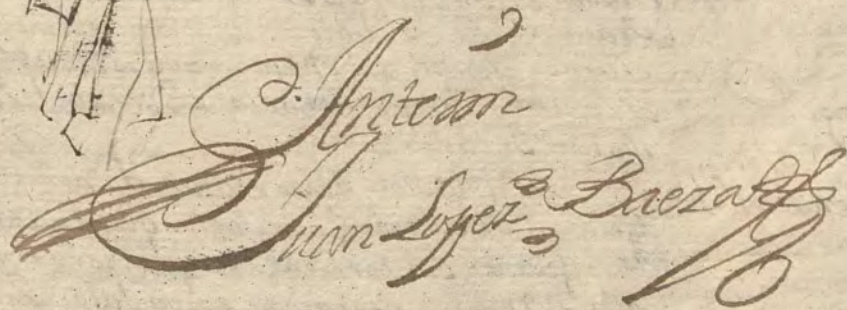 Antemi
Juan Lopez Baeza